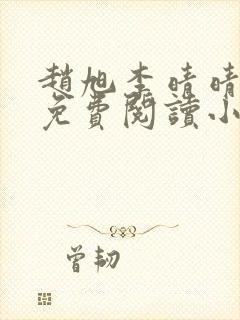 趙旭李晴晴
免費閱讀小
曾韌